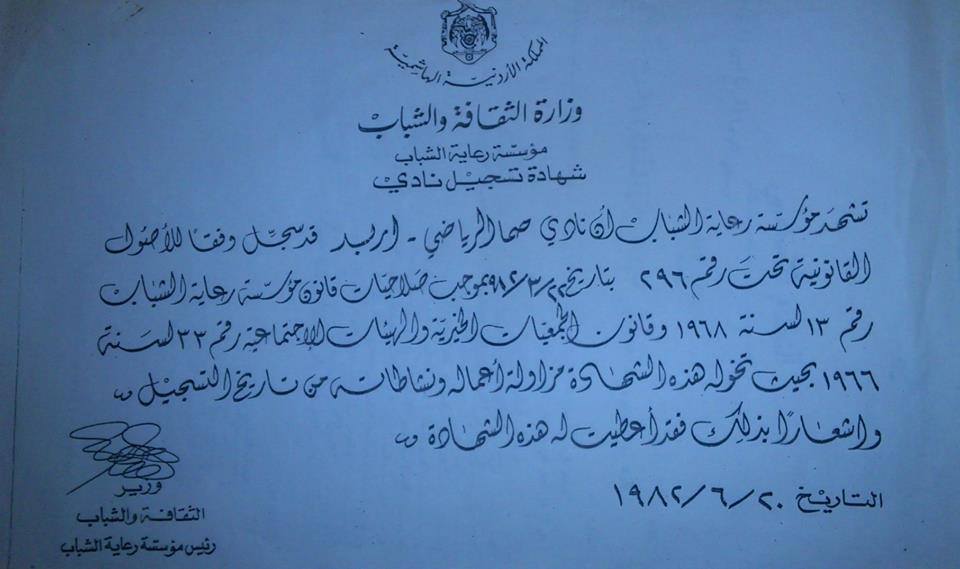 المملكة الأردنية الهاشمية
وزارة الثقافة والشباب
مؤسسة رعاية الشباب
شهادة تسجيل نادي
تشهد مؤسسة رعاية الشباب أن نادي صما الرياضي - اربد قد سجل وفقا للأصول
القانونية تحت رقم ٢٩٦ بتاريخ ٩٨٢/٣/٢٢ بموجب صلاحيات قانون مؤسسة رعاية الشباب
رقم ١٣ لسنة ١٩٦٨ وقانون الجمعيات الخيرية والهيئات الاجتماعية رقم ٣٣ لسنة
١٩٦٦ بحيث تخوله هذه الشهادة مزاولة أعماله ونشاطاته من تاريخ التسجيل ،،
واشعارًا بذلك فقد أعطيت له هذه الشهادة ،،
التاريخ ١٩٨٢/٦/٢٠
وزير
الثقافة والشباب
رئيس مؤسسة رعاية الشباب